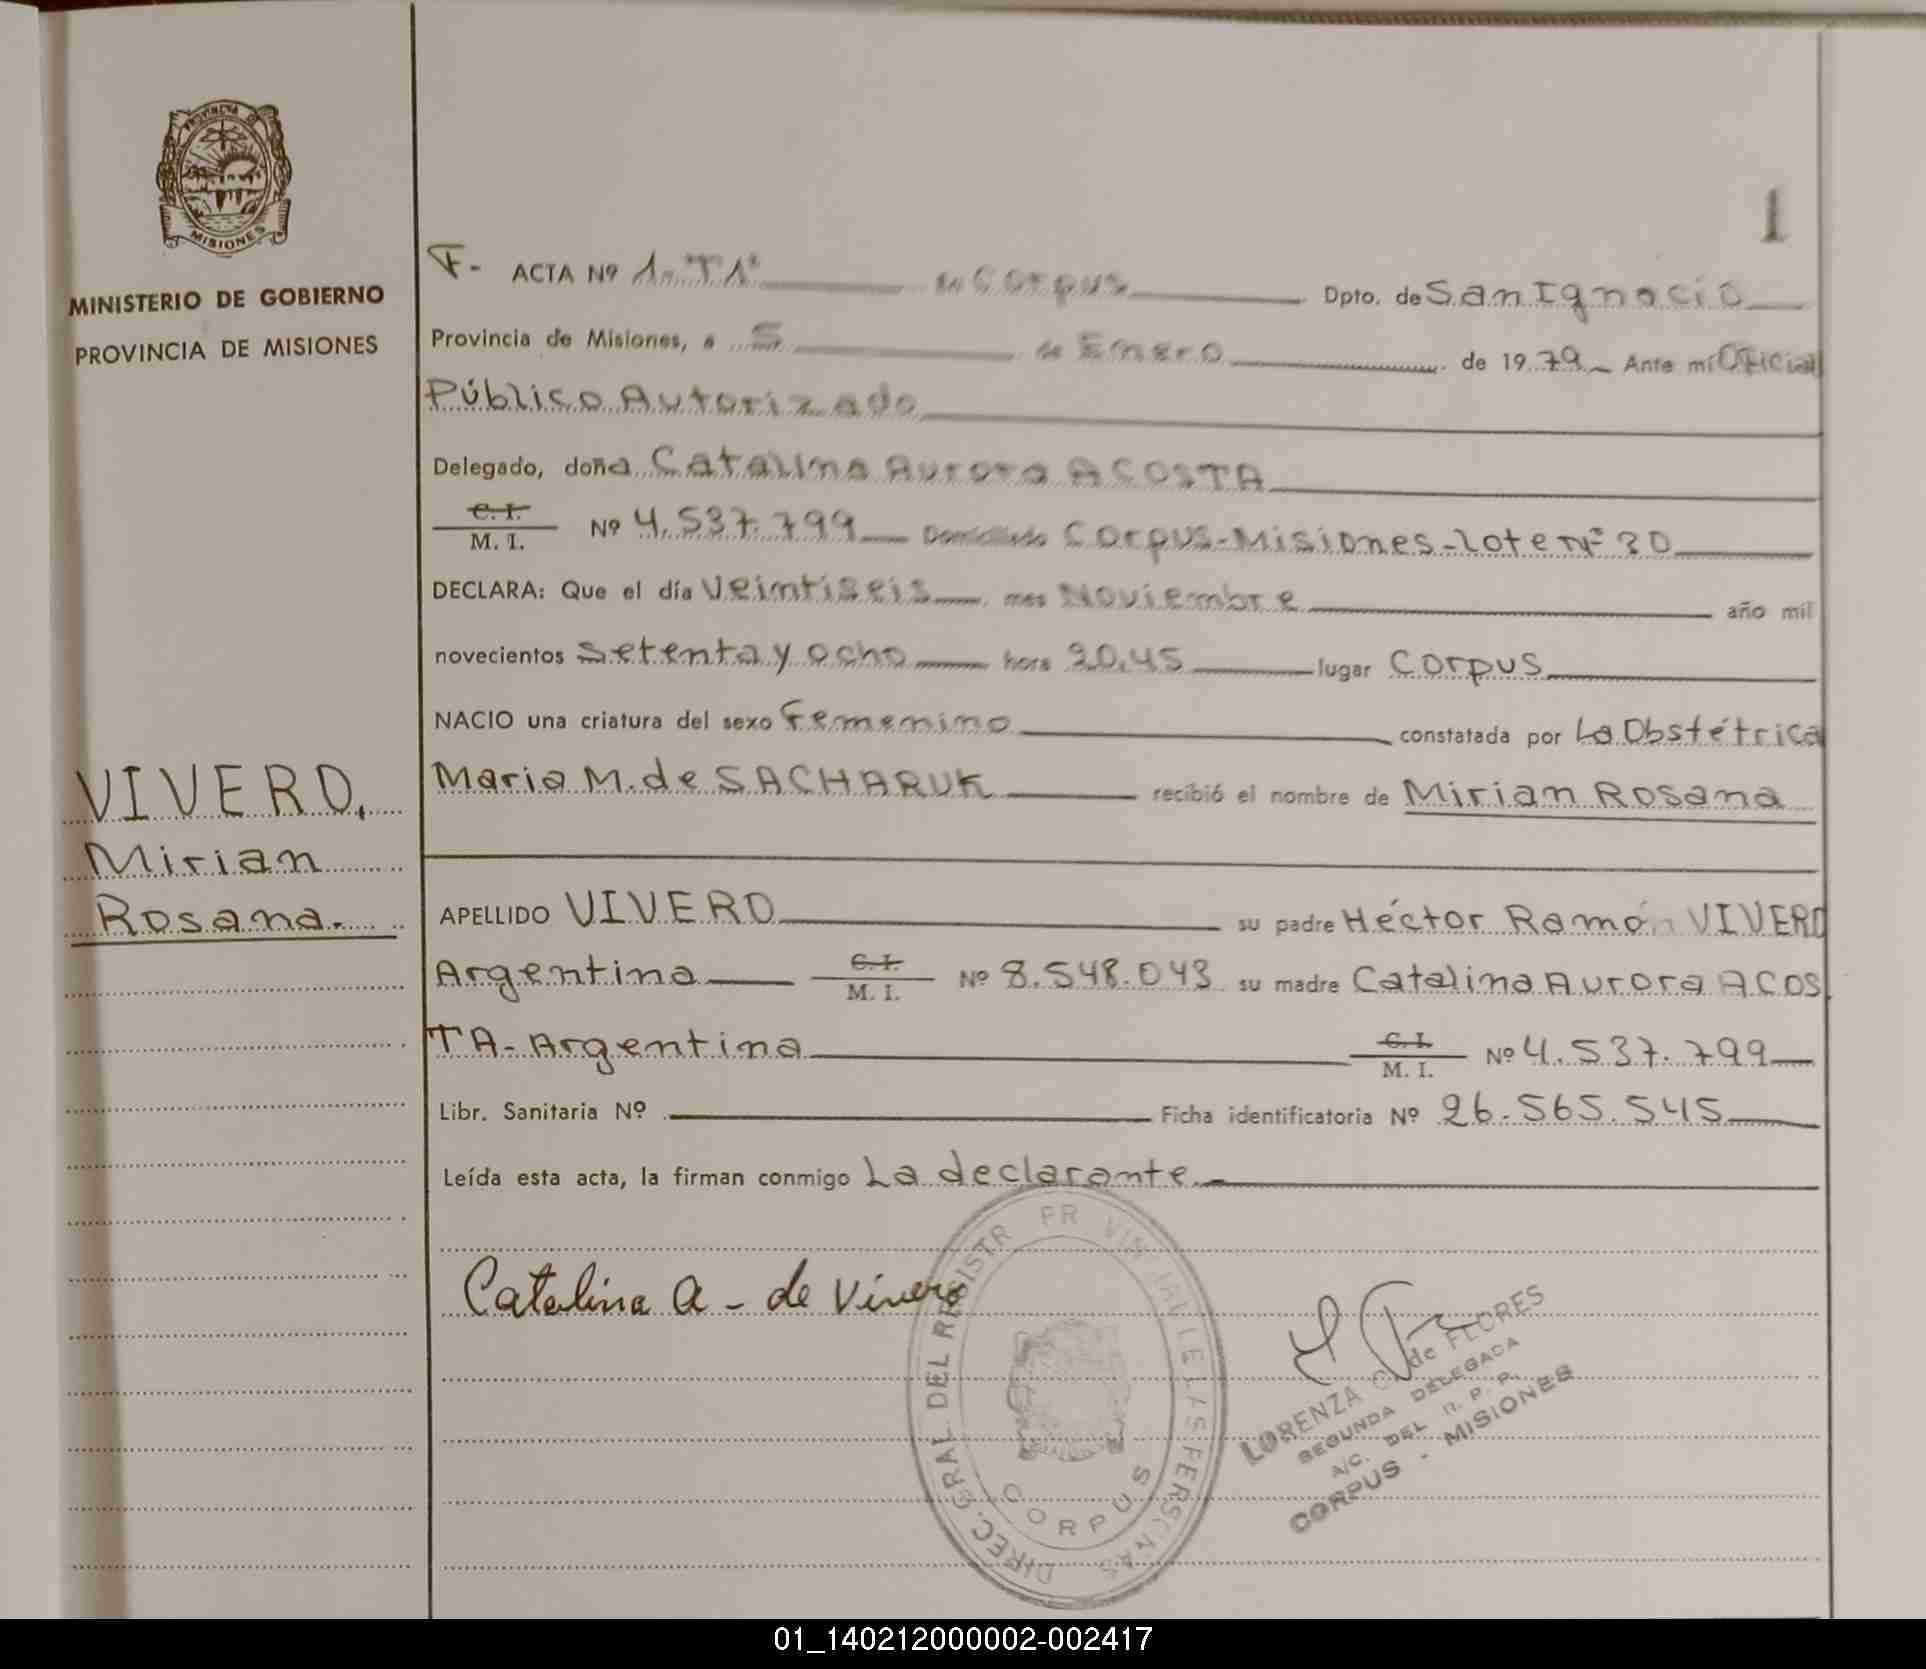 PROVINCIA DE
MISIONES
MINISTERIO DE GOBIERNO
PROVINCIA DE MISIONES
1
F- ACTA Nº 1.-"T1" en Corpus Dpto. de San Ignacio
Provincia de Misiones, a 5 de Enero de 1979 Ante mi Oficial
Público Autorizado
Delegado, doña Catalina Aurora ACOSTA
C. I.
M. I. Nº 4.537.799 Domiciliado Corpus-Misiones-lote Nº 30
DECLARA: Que el día Veintiseis mes Noviembre año mil
novecientos setenta y ocho hora 20,45 lugar Corpus
NACIO una criatura del sexo Femenino constatada por La Obstétrica
Maria M. de SACHARUK recibió el nombre de Mirian Rosana
VIVERO.
Mirian
Rosana.
APELLIDO VIVERO su padre Héctor Ramón VIVERO
Argentina C. I. M. I. Nº 8.548.043 su madre Catalina Aurora ACOS
TA-Argentina C. I. M. I. Nº 4.537.799
Libr. Sanitaria Nº Ficha identificatoria Nº 26.565.545
Leída esta acta, la firman conmigo La declarante.-
Catalina A - de Vivero
DIREC. GRAL DEL REGISTR PR VIN IAL E LAS PERSONAS
CORPUS
LORENZA de FLORES
SEGUNDA DELEGADA
A/C. DEL R. P. P.
CORPUS - MISIONES
01_140212000002-002417